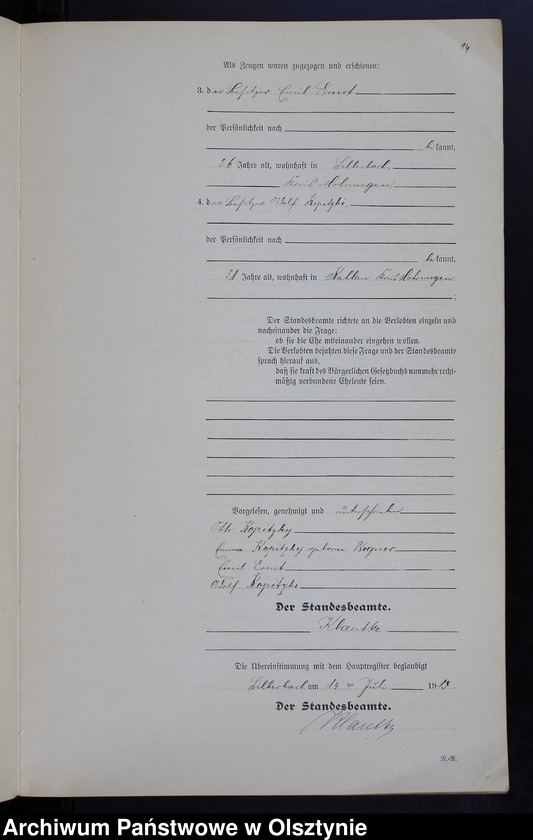 14
Als Zeugen waren zugezogen und erschienen:
3. der Besitzer Emil Ernst
der Persönlichkeit nach
be kannt,
26 Jahre alt, wohnhaft in Silberbach,
Kreis Mohrungen
4. der Besitzer Adolf Kopetzki,
der Persönlichkeit nach
be kannt,
31 Jahre alt, wohnhaft in Kallau Kreis Mohrungen
;
Der Standesbeamte richtete an die Verlobten einzeln und
nacheinander die Frage:
ob sie die Ehe miteinander eingehen wollen.
Die Verlobten bejahten diese Frage und der Standesbeamte
sprach hierauf aus,
daß sie kraft des Bürgerlichen Gesetzbuchs nunmehr recht-
mäßig verbundene Eheleute seien.
Vorgelesen, genehmigt und unterschrieben
Otto Kopetzky
Emma Kopetzky geborene
Emil Ernst
Adolf Kopetzki
Der Standesbeamte.
Klautke
Die Übereinstimmung mit dem Hauptregister beglaubigt
Silberbach am Juli 19
Der Standesbeamte.
Klautke
R.-R.
Archiwum Państwowe w Olsztynie